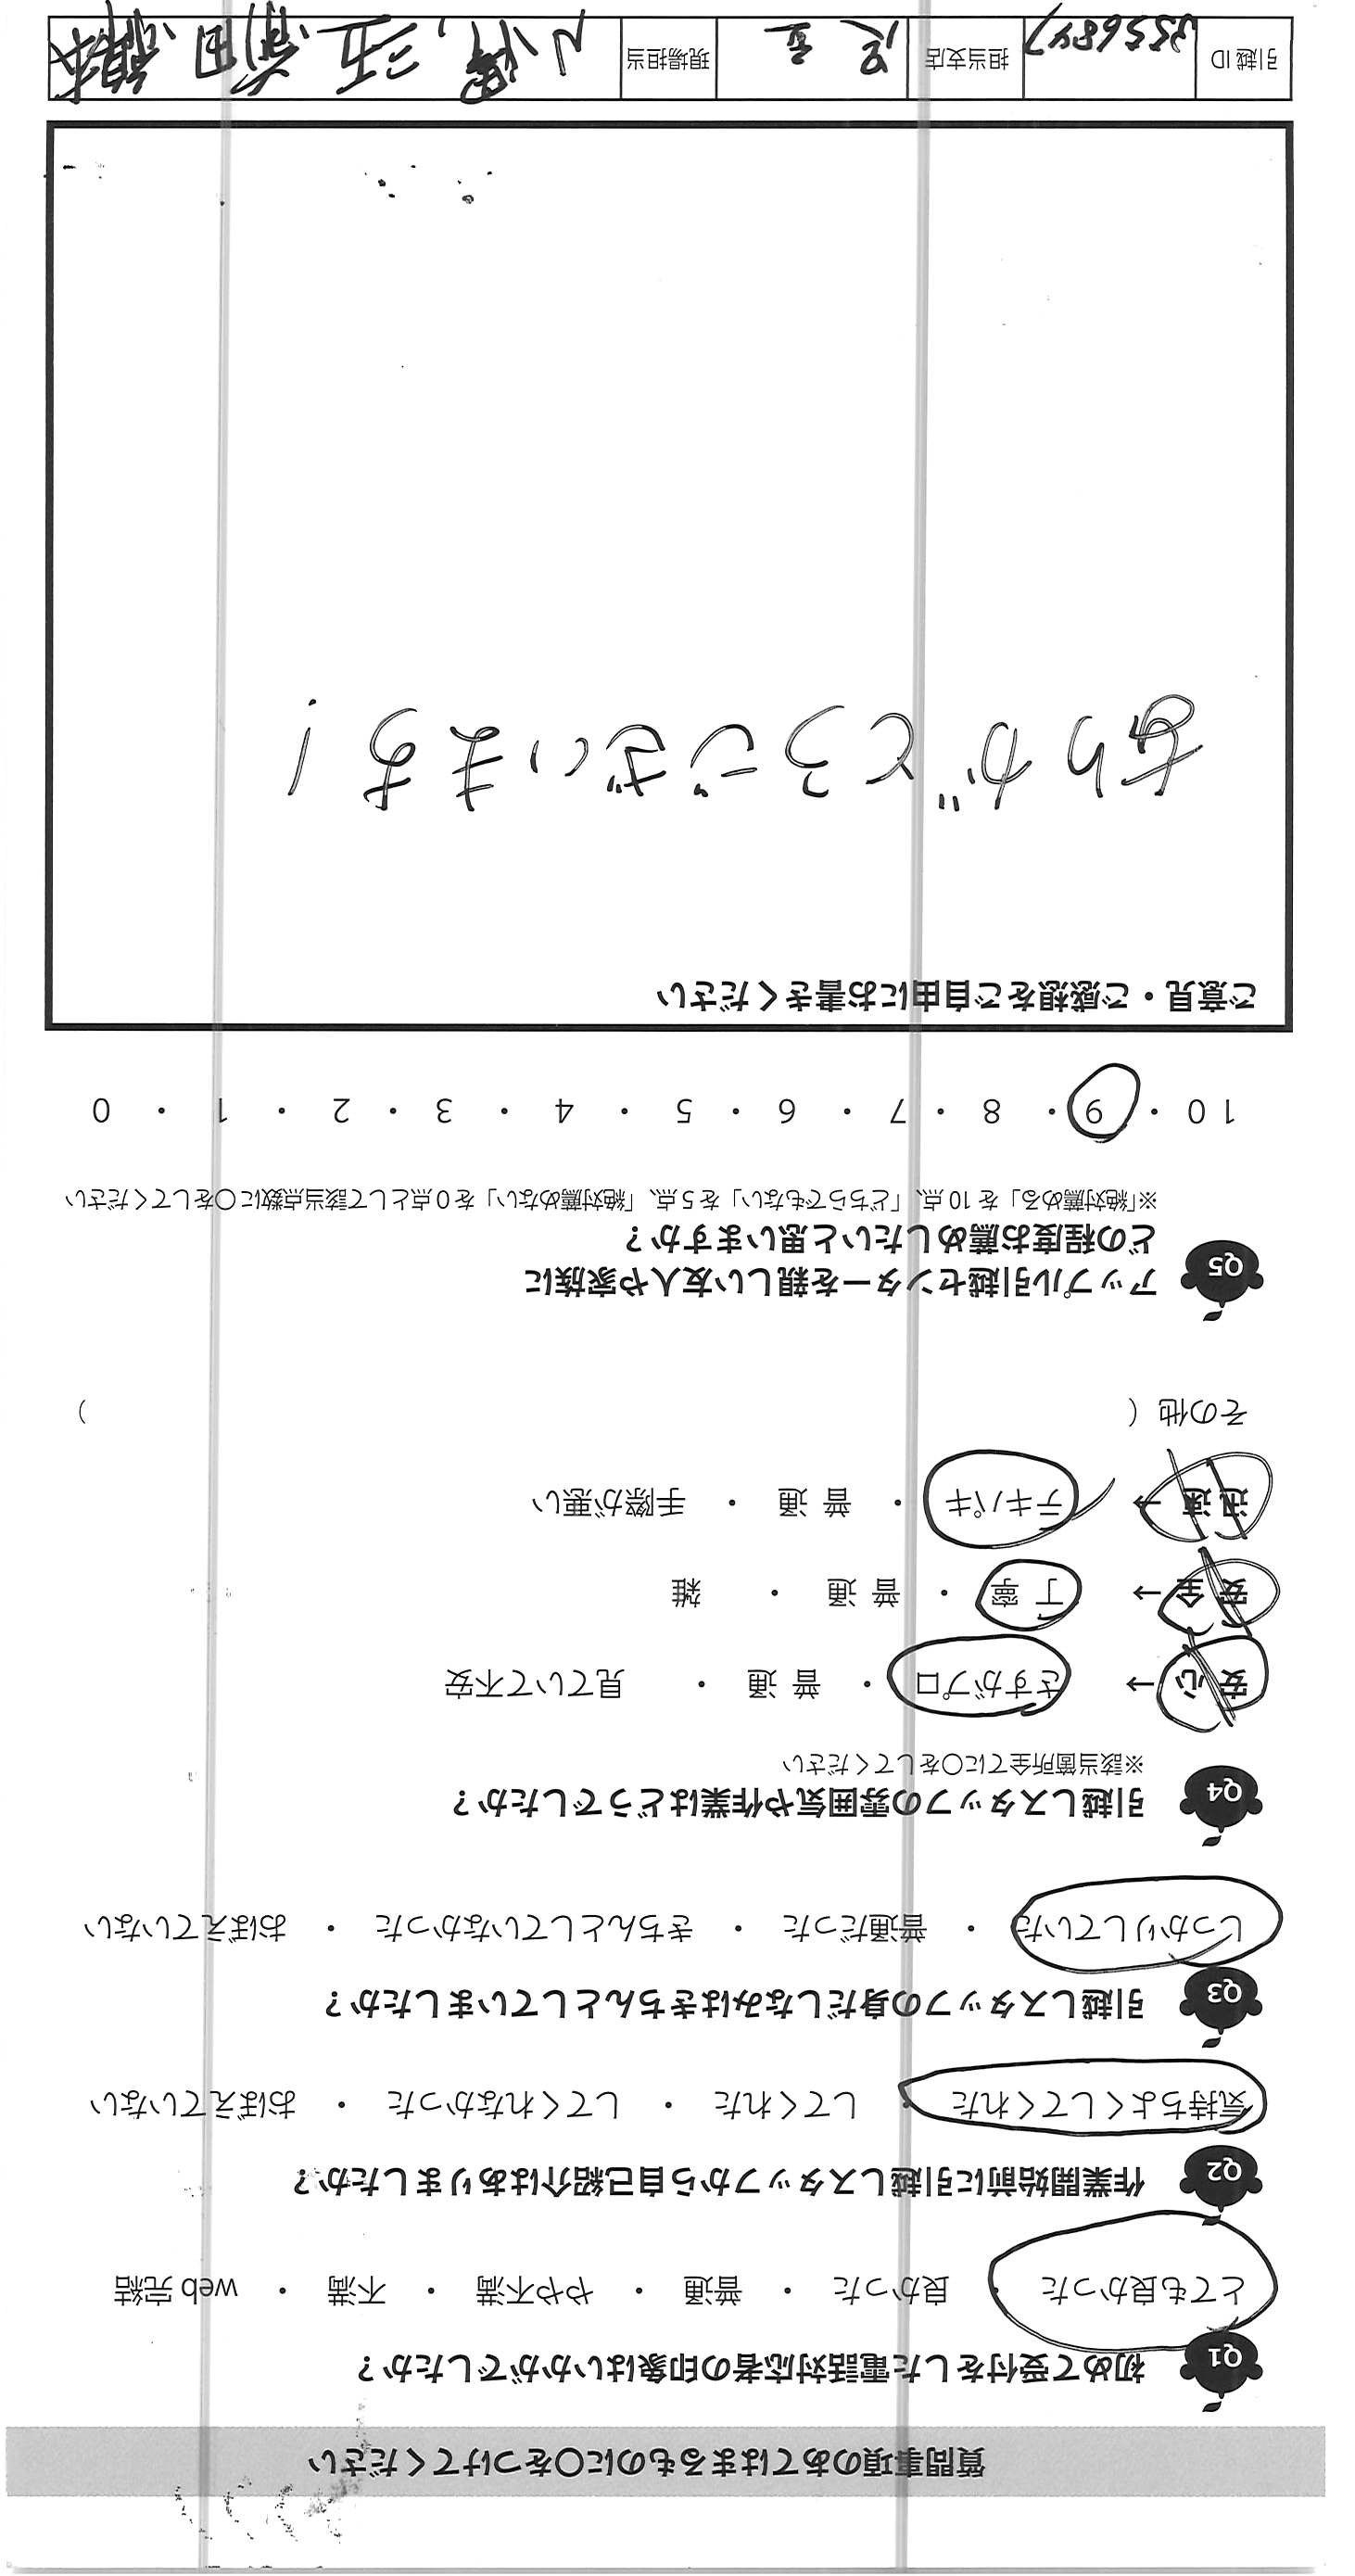 質問事項のあてはまるものに○をつけてください
Q1 初めて受付をした電話対応者の印象はいかがでしたか？
とても良かった ・ 良かった ・ 普通 ・ やや不満 ・ 不満 ・ web 完結
Q2 作業開始前に引越しスタッフから自己紹介はありましたか？
気持ちよくしてくれた ・ してくれた ・ してくれなかった ・ おぼえていない
Q3 引越しスタッフの身だしなみはきちんとしていましたか？
しっかりしていた ・ 普通だった ・ きちんとしていなかった ・ おぼえていない
Q4 引越しスタッフの雰囲気や作業はどうでしたか？
※該当箇所全てに○をしてください
安心 → さすがプロ ・ 普通 ・ 見ていて不安
安全 → 丁寧 ・ 普通 ・ 雑
迅速 → テキパキ ・ 普通 ・ 手際が悪い
その他（ ）
Q5 アップル引越センターを親しい友人や家族に
どの程度お薦めしたいと思いますか？
※「絶対薦める」を 10 点、「どちらでもない」を 5 点、「絶対薦めない」を 0 点として該当点数に○をしてください
10 ・ 9 ・ 8 ・ 7 ・ 6 ・ 5 ・ 4 ・ 3 ・ 2 ・ 1 ・ 0
ご意見・ご感想をご自由にお書きください
ありがとうございます！
引越 ID 3556847 担当支店 足立 現場担当